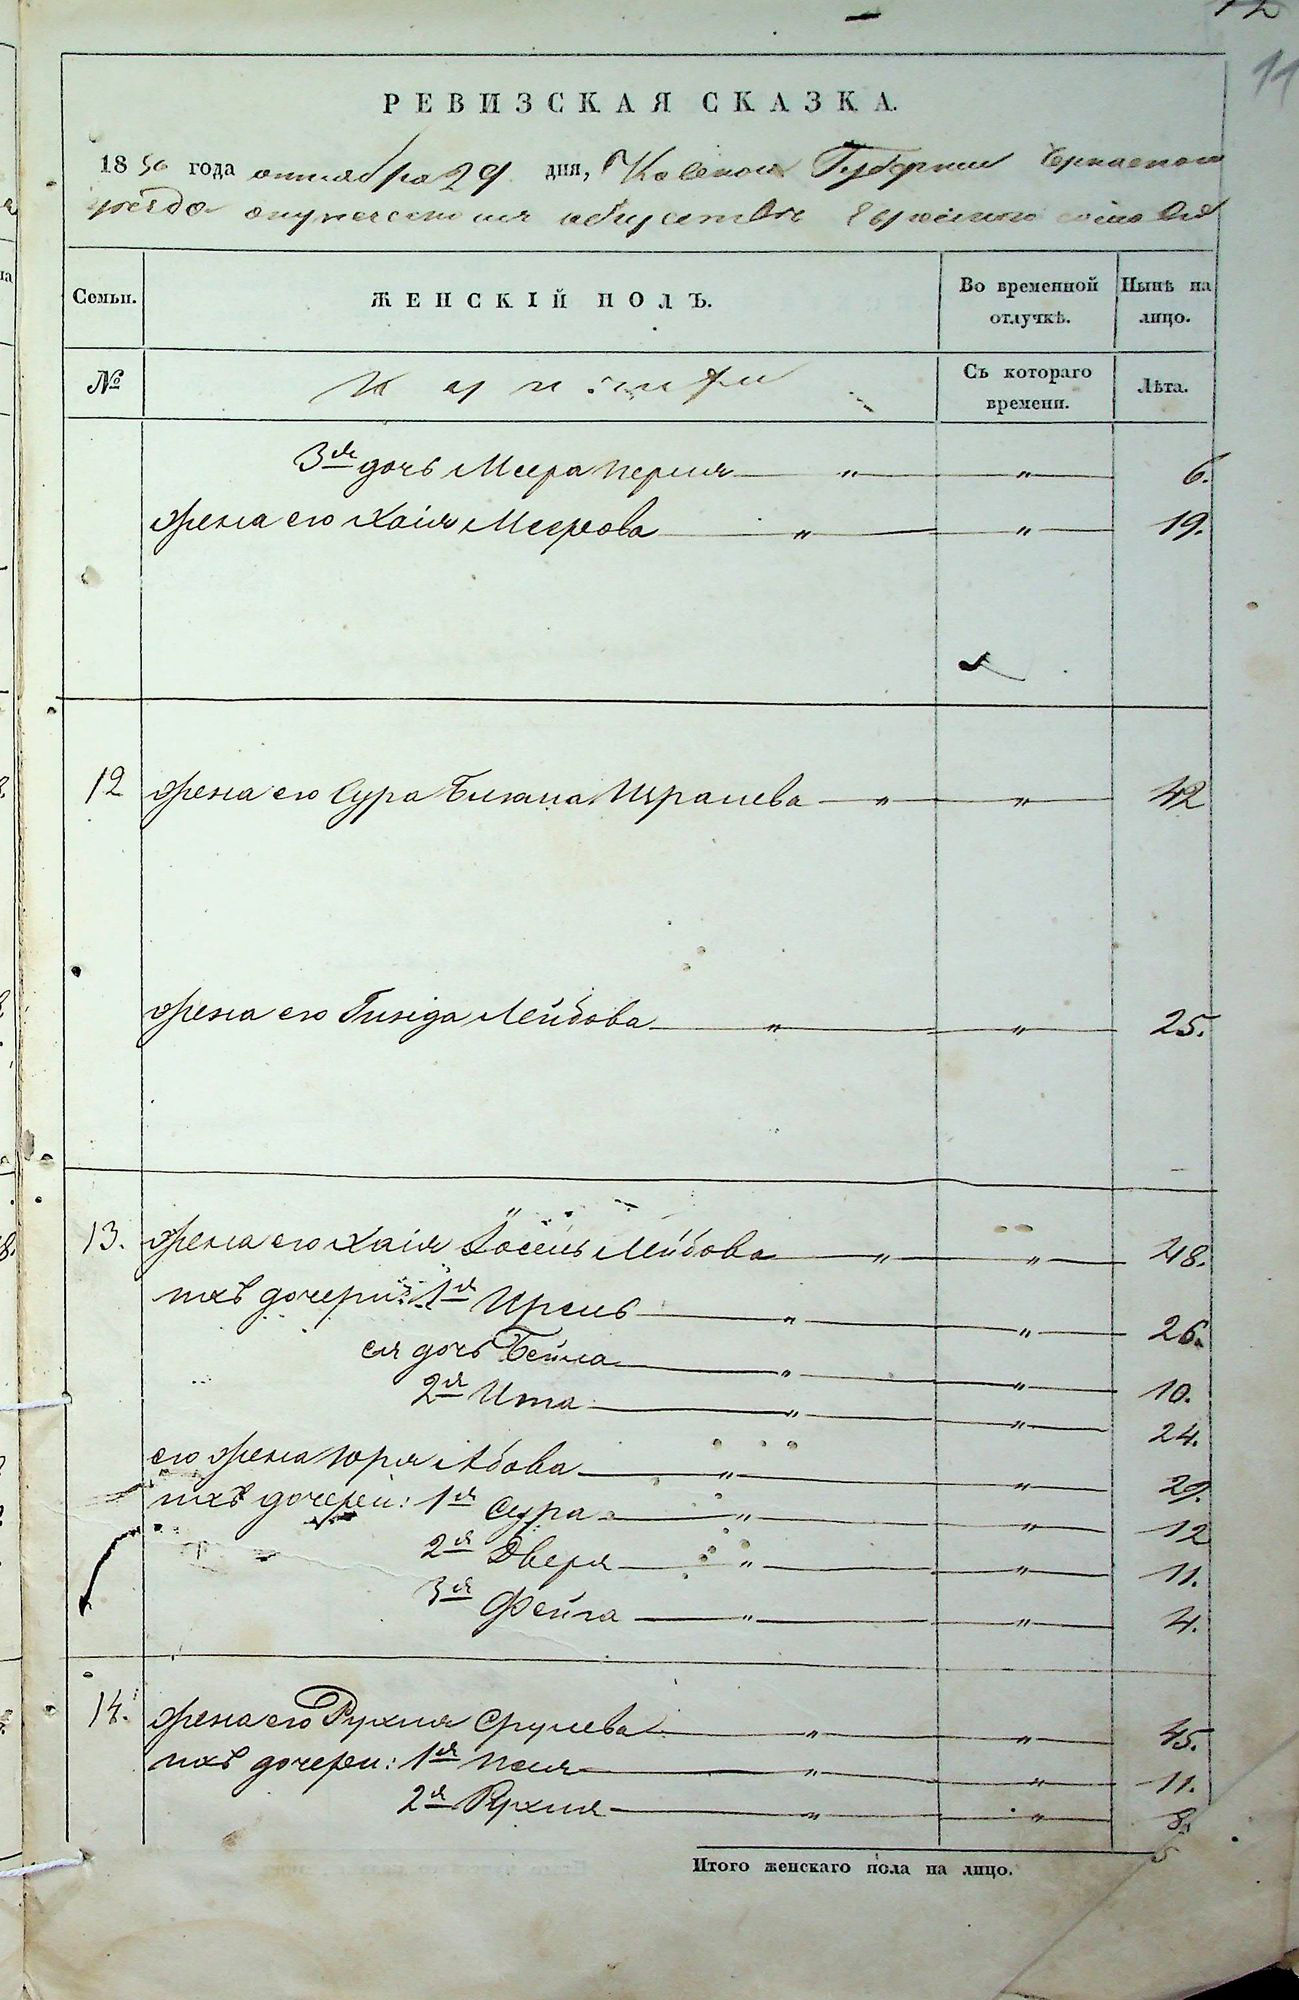 12
11
РЕВИЗСКАЯ СКАЗКА.
1850 года октября 29 дня, Киевской Губернии Черкаского
уезда
Семьи.
ЖЕНСКІЙ ПОЛЪ.
Во временной отлучкѣ.
Нынѣ на лицо.
№
Съ котораго времени.
Лѣта.
3я дочь Меера Перля " " 6.
жена его Хаія Меерова " " 19.
12 жена его Сура Израилева " " 42
жена его Гинда Лейбова " " 25.
13. жена его Хаія Лейбова " " 48.
ихъ дочери: 1я " " 26.
ея дочь Бейла " " 10.
2я Ита " " 24.
его жена Абова " " 29.
ихъ дочери: 1я Сура " " 12
2я Двера " " 11.
3я Фейга " " 4.
14. жена его Рухля Срулева " " 45.
ихъ дочери: 1я " " 11.
2я Рухля " " 8.
Итого женскаго пола на лицо.